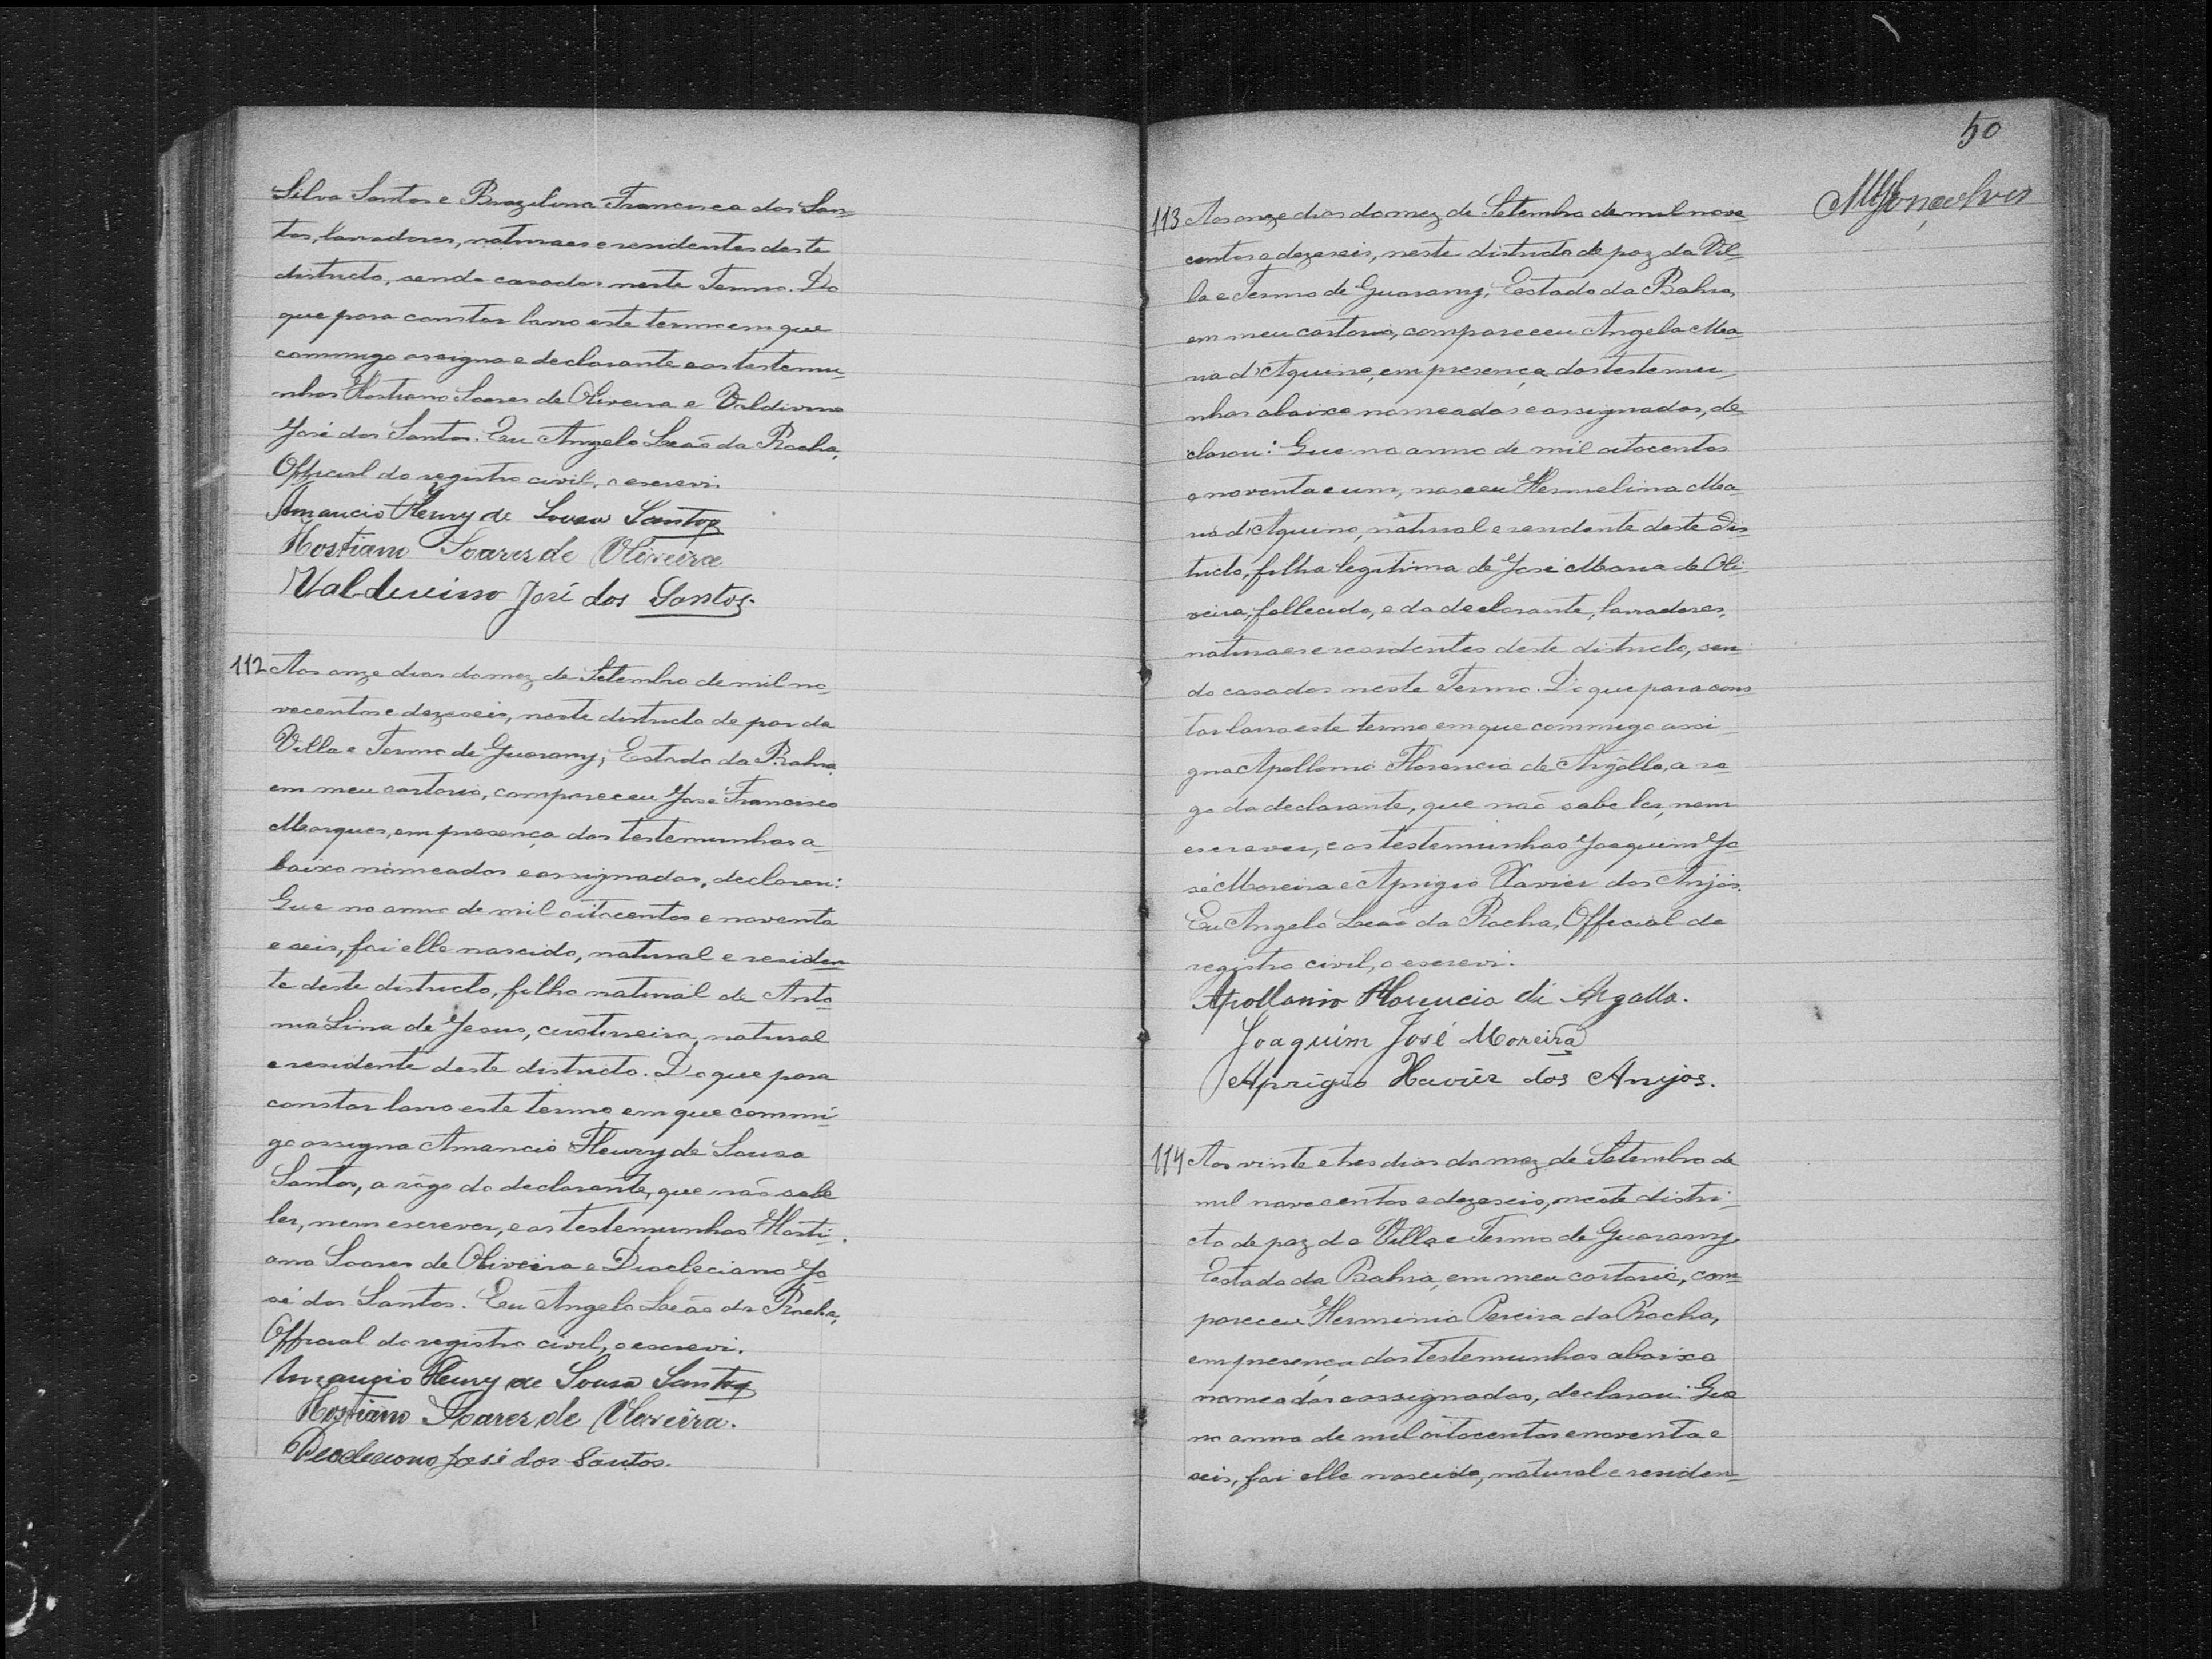 Silva Santos e Brazilina Francisca dos San-
tos, lavradores, naturaes e residentes deste
districto, sendo casados neste Termo. Do
que para constar lavro este termo em que
commigo assigna o declarante e as testemu-
nhas Hostiano Soares de Oliveira e Valdivino
José dos Santos. Eu Angelo Leão da Rocha,
Official do registro civil, o escrevi.
Amancio Fleury de Sousa Santos
Hostiano Soares de Oliveira
Valdivino José dos Santos.
112 Aos onze dias do mez de Setembro de mil no-
vecentos e dezeseis, neste districto de paz da
Villa e Termo de Guarany, Estado da Bahia,
em meu cartorio, compareceu José Francisco
Marques, em presença das testemunhas a-
baixo nomeadas e assignadas, declarou:
Que no anno de mil oitocentos e noventa
e seis, foi elle nascido, natural e residen-
te deste districto, filho natural de Anto-
nia Lina de Jesus, custureira, natural
e residente deste districto. Do que para
constar lavro este termo em que commi-
go assigna Amancio Fleury de Sousa
Santos, a rôgo do declarante, que não sabe
ler, nem escrever, e as testemunhas Hosti-
ano Soares de Oliveira e Diocleciano Jo-
sé dos Santos. Eu Angelo Leão da Rocha,
Official do registro civil, o escrevi.
Amancio Fleury de Sousa Santos
Hostiano Soares de Oliveira.
Diocleciano José dos Santos.
50
MGonçalves
113 Aos onze dias do mez de Setembro de mil nove-
centos e dezeseis, neste districto de paz da Vil-
la e Termo de Guarany, Estado da Bahia,
em meu cartorio, compareceu Angela Ma-
ria d'Aquino, em presença das testemu-
nhas abaixo nomeadas e assignadas, de-
clarou: Que no anno de mil oitocentos
e noventa e um, nasceu Hermelina Ma-
ria d'Aquino, natural e residente deste dis-
tricto, filha legitima de José Maria de Oli-
veira, fallecido, e da declarante, lavradores,
naturaes e residentes deste districto, sen-
do casados neste Termo. Do que para cons-
tar lavro este termo em que commigo assi-
gna Apollonio Florencio de Argôllo, a ro-
go da declarante, que não sabe ler, nem
escrever, e as testemunhas Joaquim Jo-
sé Moreira e Aprigio Xavier dos Anjos.
Eu Angelo Leão da Rocha, Official do
registro civil, o escrevi.
Apollonio Florencio di Argollo.
Joaquim José Moreira
Aprigio Xavier dos Anjos.
114 Aos vinte e tres dias do mez de Setembro de
mil novecentos e dezeseis, neste distri-
cto de paz da Villa e Termo de Guarany,
Estado da Bahia, em meu cartorio, com-
pareceu Herminio Pereira da Rocha,
em presença das testemunhas abaixo
nomeadas e assignadas, declarou: Que
no anno de mil oitocentos e noventa e
seis, foi elle nascido, natural e residen-